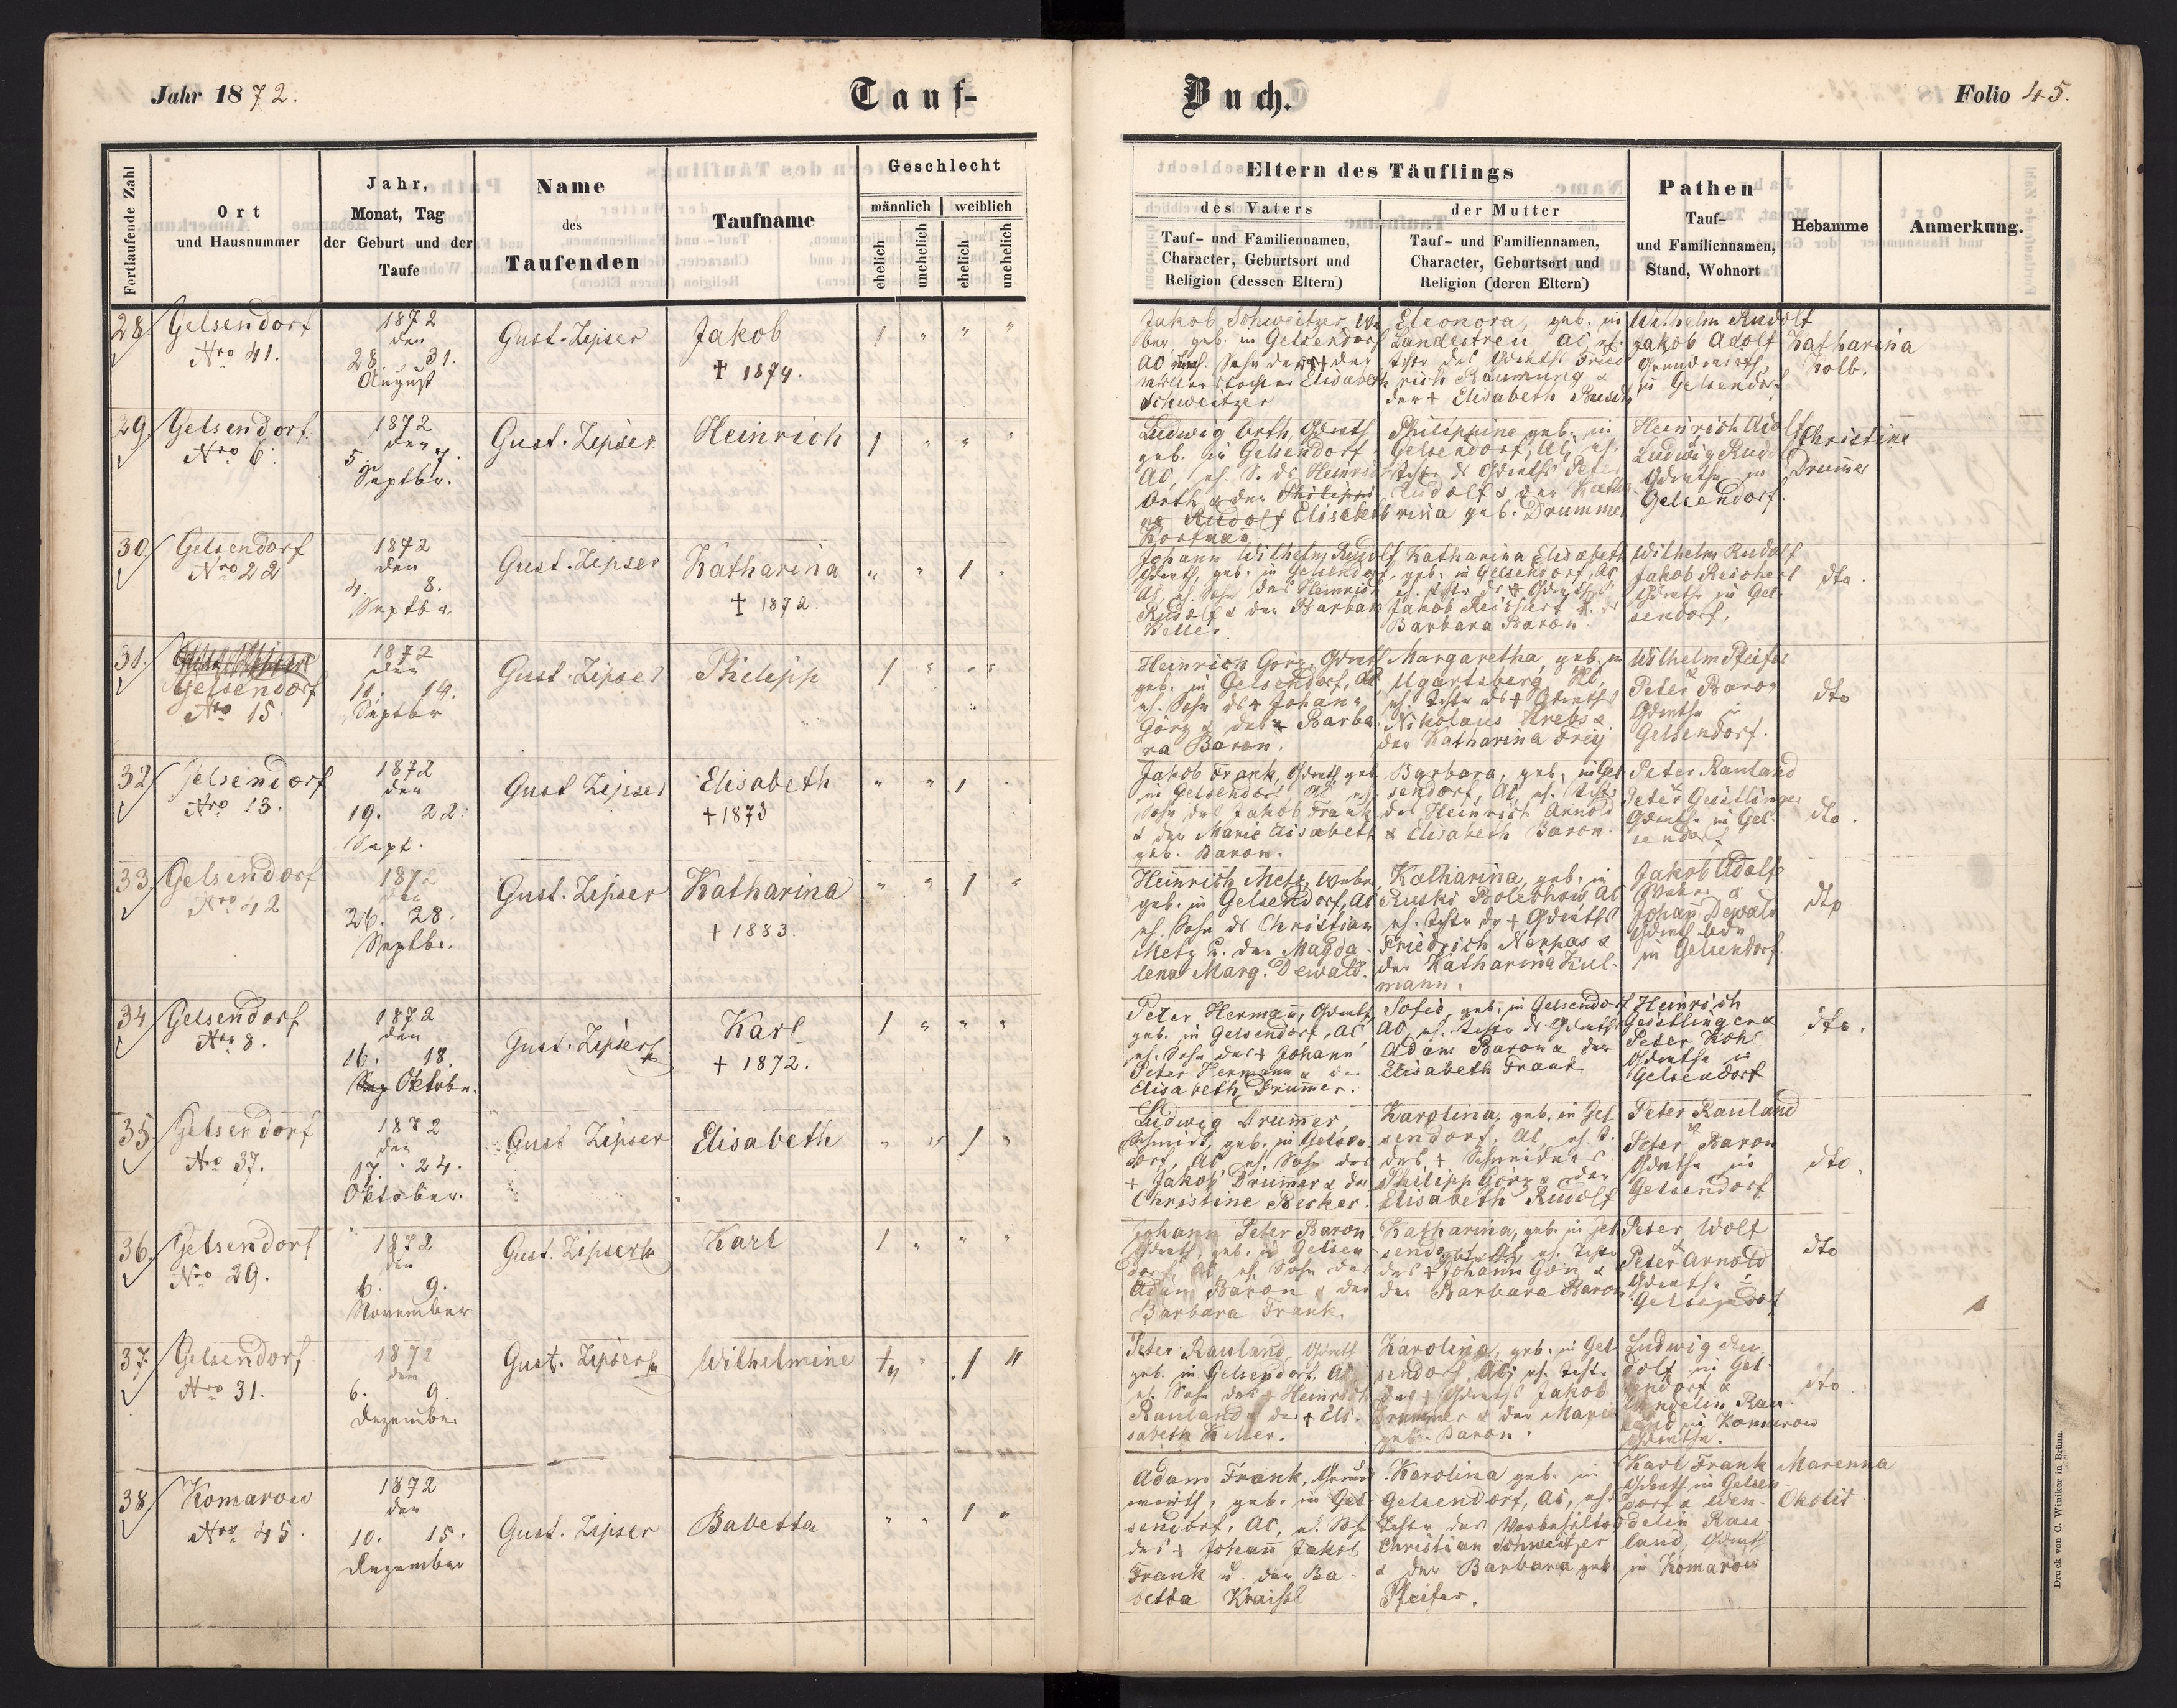 Jahr 1872.
Tauf-
Buch.
Folio 45.
Fortlaufende Zahl
Ort
und Hausnummer
Jahr,
Monat, Tag
der Geburt und der
Taufe
Name
des
Taufenden
Taufname
Geschlecht
männlich
weiblich
ehelich
unehelich
ehelich
unehelich
Eltern des Täuflings
des Vaters
Tauf- und Familiennamen,
Character, Geburtsort und
Religion (dessen Eltern)
der Mutter
Tauf- und Familiennamen,
Character, Geburtsort und
Religion (deren Eltern)
Pathen
Tauf-
und Familiennamen,
Stand, Wohnort
Hebamme
Anmerkung.
28
Gelsendorf
Nro 41.
1872
den
28. 31.
August
Gust. Zipser
Jakob
† 1874.
1 " " "
Jakob Schweitzer, We
ber geb. in Gelsendorf
AC Sohn der
Elisabeth
Schweitzer
Eleonora, geb. in
Landestreu AC eh.
Tchtr des Grwths Fried
rich Raumung &
der † Elisabeth Busch
Wilhelm Rudolf
Jakob Adolf
Grundwirth
in Gelsendorf
Katharina
Kolb.
29.
Gelsendorf
Nro 6.
1872
den
5. 7.
Septbr.
Gust. Zipser
Heinrich
1 " " "
Ludwig Orth, Gdwth
geb. in Gelsendorf
AC, eh. S. ds Heinrich
Orth & der Philippi
ne Rudolf Elisabeth
Philippine geb. in
Gelsendorf, AC, eh.
Tchtr ds Gdwths Peter
Rudolf & der Katha
rina geb. Drummer
Heinrich Adolf
Ludwig Rudolf
Gdwthe in
Gelsendorf.
Christine
Drum̄er
30
Gelsendorf
Nro 22
1872
den
4. 8.
Septbr.
Gust. Zipser
Katharina
† 1872.
" " 1 "
Johann Wilhelm Rudolf
Gdwth, geb. in Gelsendorf,
AC, eh. Sohn des Heinrich
Rudolf & der Barbara
Keller.
Katharina Elisabeth
geb. in Gelsendorf, AC
eh. Tchtr ds † Gdwths
Jakob Reichert & der
Barbara Baron.
Wilhelm Rudolf
Jakob Reichert
Gdwthe in Gel-
sendorf.
dto.
31.
Gelsendorf
Nro 15.
1872
den
11. 14.
Septbr
Gust. Zipser
Philipp
1 " " "
Heinrich Görz, Gdwth
geb. in Gelsendorf, AC
eh. Sohn ds † Johann
Görz & der † Barba
ra Baron.
Margaretha, geb. in
Ugartsberg, AC,
eh. Tchtr ds † Gdwths
Nikolaus Krebs &
der Katharina Frey
Wilhelm Pfeifer
&
Peter Baron
Gdwthe in
Gelsendorf.
dto
32
Gelsendorf
Nro 13.
1872
den
19. 22.
Sept.
Gust Zipser
Elisabeth
† 1873
" " 1 "
Jakob Frank, Gdwth geb.
in Gelsendorf AC, eh.
Sohn des Jakob Frank
& der Marie Elisabeth
geb. Baron.
Barbara, geb. in Gel-
sendorf, AC, eh. Tchtr
des Heinrich Arnold
& Elisabeth Baron.
Peter Rauland
&
Peter Gesttlinger
Gdwthe in Gel-
sendorf
dto.
33.
Gelsendorf
Nro 42
1872
den
26. 28.
Septbr.
Gust. Zipser
Katharina
† 1883.
" " 1 "
Heinrich Metz, Weber,
geb. in Gelsendorf, AC
eh. Sohn ds Christian
Metz u. der Magda-
lena Marg. Dewald.
Katharina, geb. in
Ruski Bolechow, AC
eh. Tchtr ds † Gdwths
Friedrich Nerpas &
der Katharina Kul-
mann.
Jakob Adolf
Weber &
Johan̄ Dewald
Gdwth
in Gelsendorf.
dto
34
Gelsendorf
Nro 8.
1872
den
16. 18.
Sep Oktobr.
Gust. Zipser
Karl
† 1872.
1 " " "
Peter Herman̄, Gdwth,
geb. in Gelsendorf, AC,
eh. Sohn des † Johann
Peter Hermann & der
Elisabeth Drum̄er.
Sofie, geb. in Gelsendorf
AC, eh. Tchtr ds Gdwths
Adam Baron & der
Elisabeth Frank
Heinrich
Gesttlinger &
Peter Kohl
Gdwthe in
Gelsendorf
dto.
35.
Gelsendorf
Nro 37.
1872
den
17. 24.
Oktober.
Gust Zipser
Elisabeth
" " 1 "
Ludwig Drum̄er,
Schmidt, geb. in Gelsen
dorf, AC, eh. Sohn des
† Jakob Drum̄er & der
Christine Becker.
Karolina, geb. in Gel
sendorf, AC, eh. T.
des † Schneiders
Philipp Görz & der
Elisabeth Rudolf
Peter Rauland
&
Peter Baron
Gdwthe in
Gelsendorf
dto.
36.
Gelsendorf
Nro 29.
1872
den
6. 9.
November
Gust. Zipser
Karl
1 " " "
Johann Peter Baron
Gdwth, geb. in Gelsen
dorf, AC, eh. Sohn des
Adam Baron & der
Barbara Frank
Katharina, geb. in Gel
sendorf, AC, eh. Tchtr
des † Johann Görz &
der Barbara Baron
Peter Wolf
&
Peter Arnold
Gdwthe in
Gelsendorf
dto
37.
Gelsendorf
Nro 31.
1872
den
6. 9.
Dezember
Gust. Zipser
Wilhelmine
" 1 "
Peter Rauland, Gdwth
geb. in Gelsendorf, AC,
eh. Sohn des † Heinrich
Rauland & der † Eli-
sabeth Keller.
Karolina, geb. in Gel
sendorf, AC, eh. Tchtr
des † Gdwths Jakob
Drummer & der Marie
geb. Baron.
Ludwig Ru-
dolf in Gel-
sendorf &
Wendelin Rau-
land in Komarow
Gdwthe.
dto
38
Komarow
Nro 45.
1872
den
10. 15.
Dezember
Gust. Zipser
Babetta
" " 1 "
Adam Frank, Grund
wirth, geb. in Gel-
sendorf, AC, eh. Sohn
des † Johan̄ Jakob
Frank u. der Ba-
betta Kraisel
Karolina geb. in
Gelsendorf, AC, eh.
Tchtr des Vorbehälters
Christian Schweitzer
& der Barbara geb.
Pfeifer.
Karl Frank
Gdwth in Gelsen-
dorf & Wen-
delin Rau-
land, Gdwth
in Komarow
Marenna
Okolit
Druck von C. Winiker in Brünn.